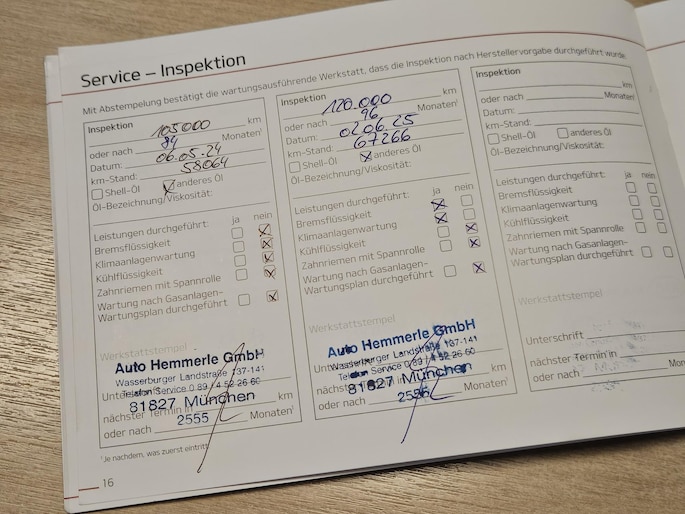 Service – Inspektion
Mit Abstempelung bestätigt die wartungsausführende Werkstatt, dass die Inspektion nach Herstellervorgabe durchgeführt wurde.
Inspektion 105000 km
oder nach 84 Monaten¹
Datum: 06.05.24
km-Stand: 58064
Shell-Öl anderes Öl
Öl-Bezeichnung/Viskosität:
Leistungen durchgeführt: ja nein
Bremsflüssigkeit
Klimaanlagenwartung
Kühlflüssigkeit
Zahnriemen mit Spannrolle
Wartung nach Gasanlagen-
Wartungsplan durchgeführt
Werkstattstempel
Auto Hemmerle GmbH
Wasserburger Landstraße 137-141
Telefon Service 0 89 / 4 52 26 60
81827 München
nächster Termin in km
2555
oder nach Monaten¹
Inspektion 120.000 km
oder nach 96 Monaten¹
Datum: 02.06.25
km-Stand: 67266
Shell-Öl anderes Öl
Öl-Bezeichnung/Viskosität:
Leistungen durchgeführt: ja nein
Bremsflüssigkeit
Klimaanlagenwartung
Kühlflüssigkeit
Zahnriemen mit Spannrolle
Wartung nach Gasanlagen-
Wartungsplan durchgeführt
Werkstattstempel
Auto Hemmerle GmbH
Wasserburger Landstraße 137-141
Telefon Service 0 89 / 4 52 26 60
81827 München
nächster Termin in km
oder nach Monaten¹
Inspektion km
oder nach Monaten¹
Datum:
km-Stand:
Shell-Öl anderes Öl
Öl-Bezeichnung/Viskosität:
Leistungen durchgeführt: ja nein
Bremsflüssigkeit
Klimaanlagenwartung
Kühlflüssigkeit
Zahnriemen mit Spannrolle
Wartung nach Gasanlagen-
Wartungsplan durchgeführt
Werkstattstempel
Unterschrift
nächster Termin in km
oder nach Monaten¹
¹ Je nachdem, was zuerst eintritt
16